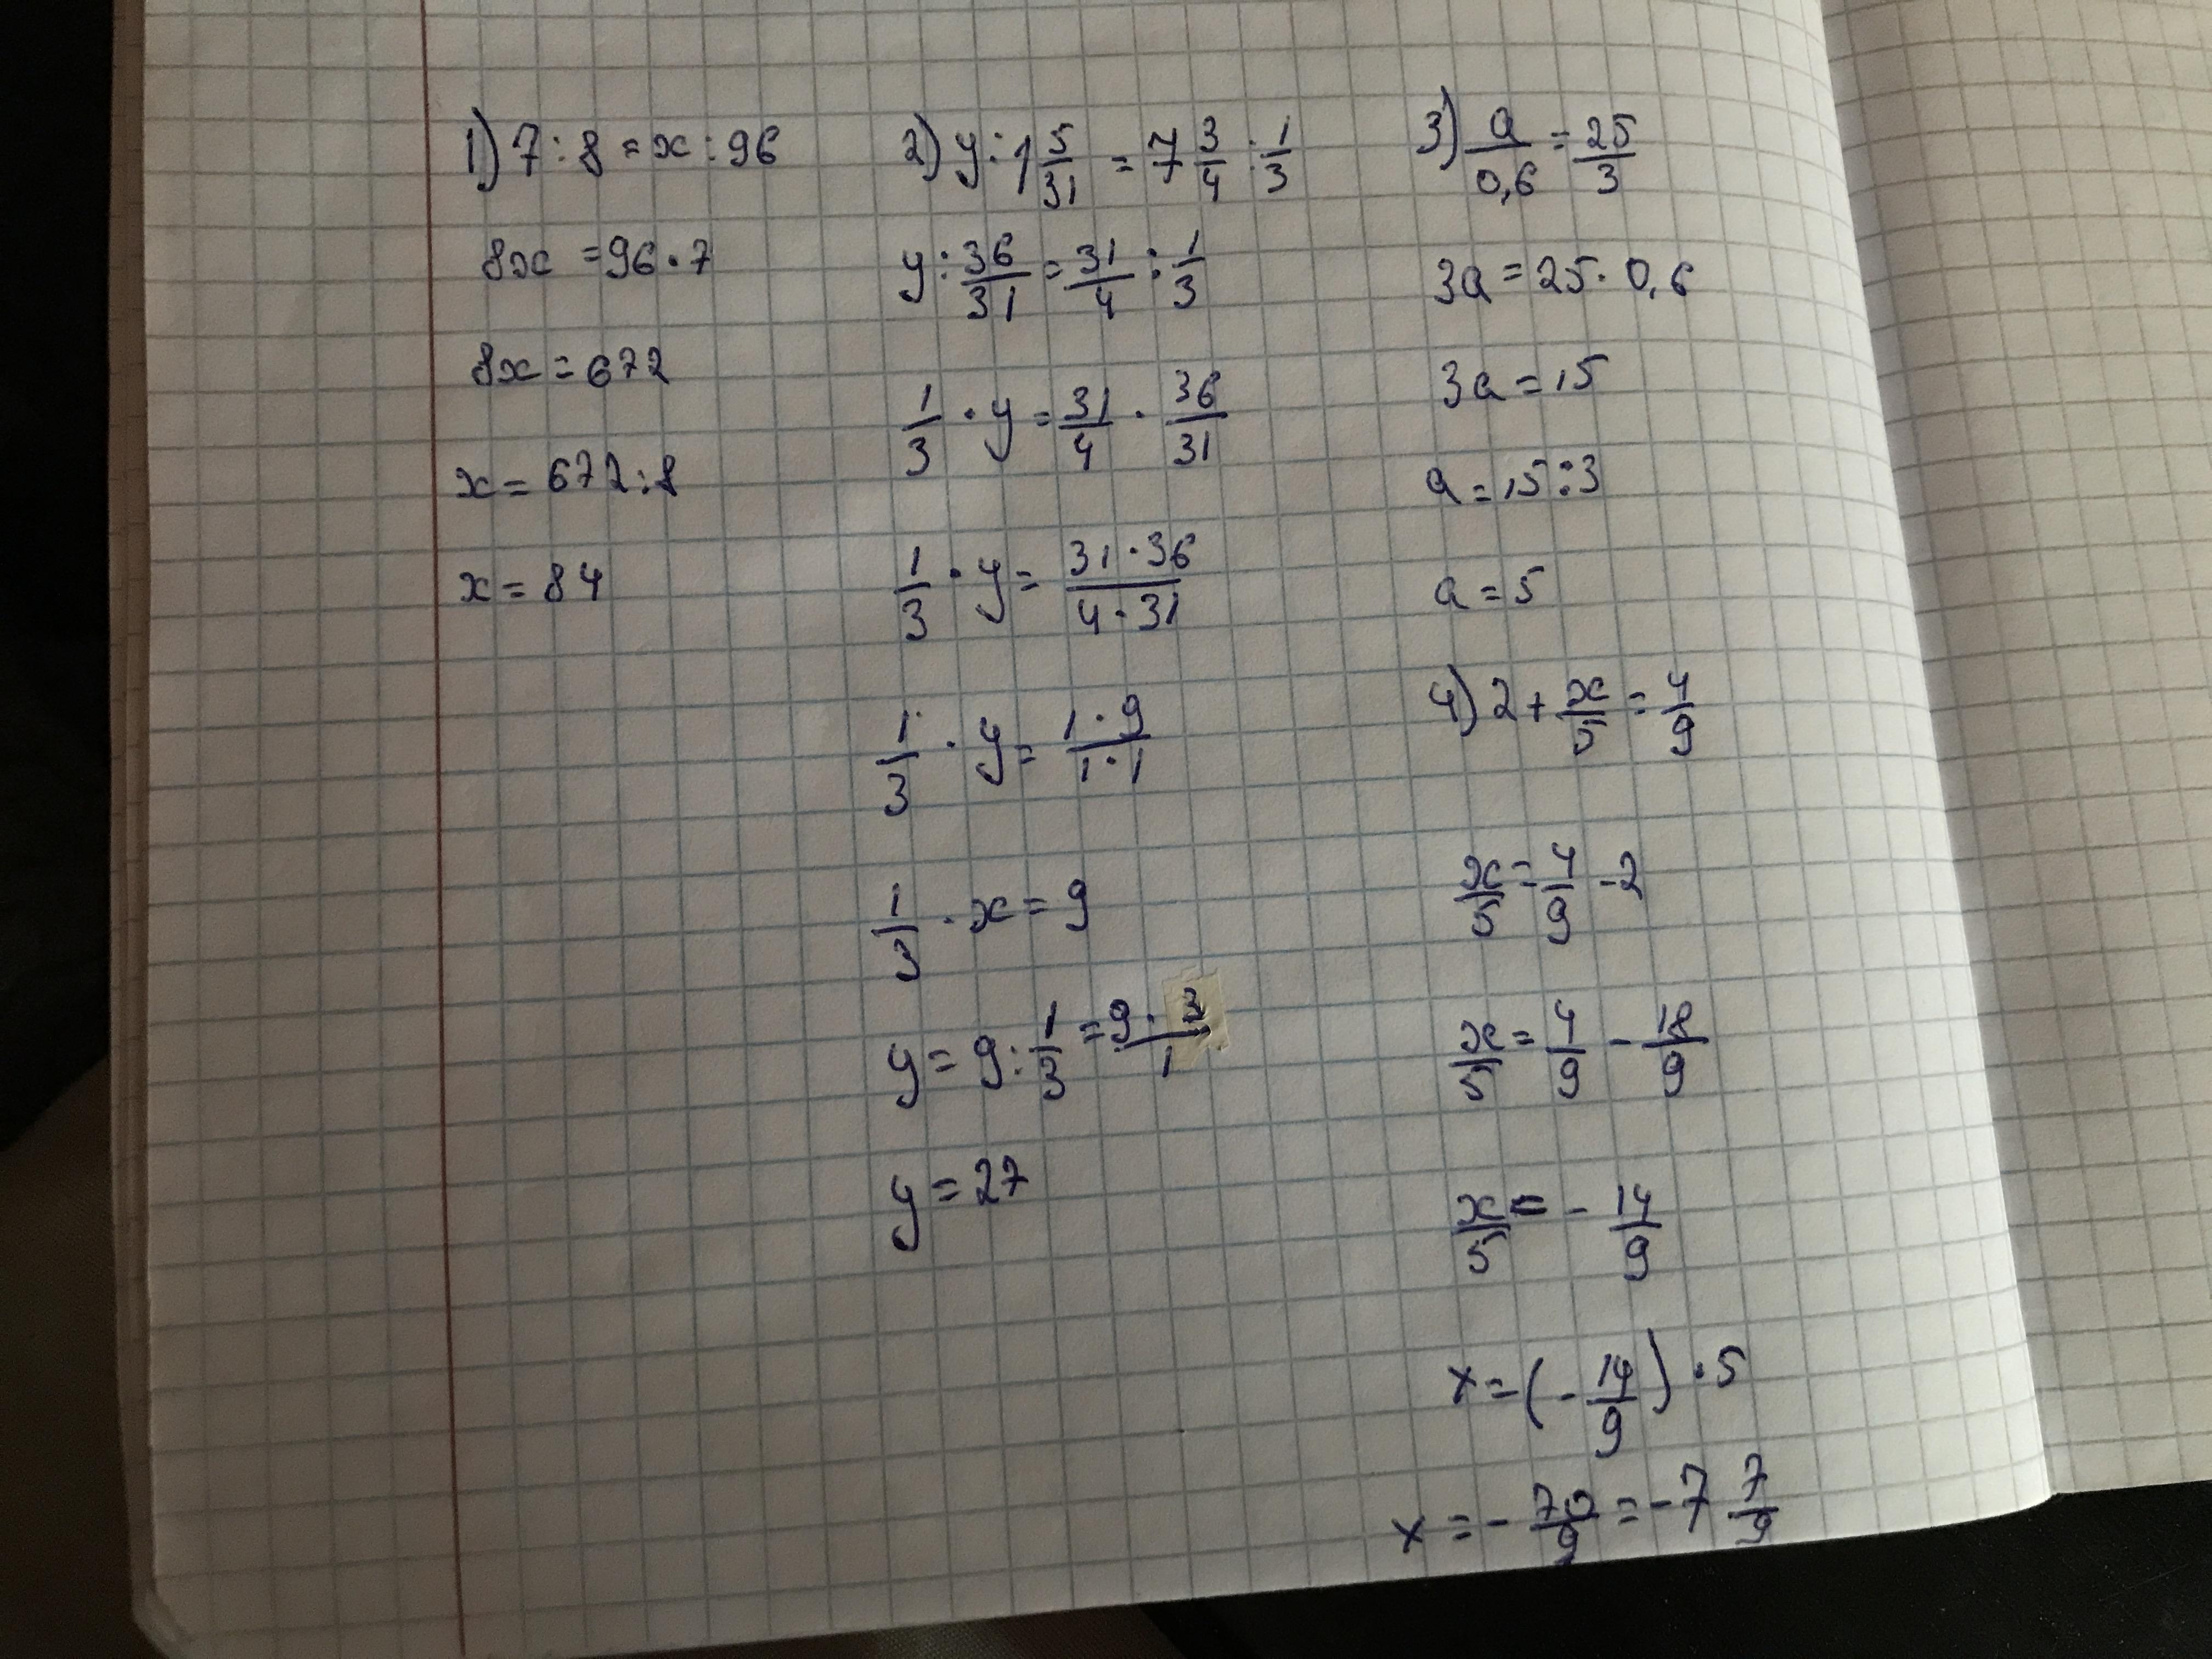 1) 7 : 8 = x : 96
8x = 96 · 7
8x = 672
x = 672 : 8
x = 84
2) y : 1 5/31 = 7 3/4 : 1/3
y : 36/31 = 31/4 : 1/3
1/3 · y = 31/4 · 36/31
1/3 · y = (31 · 36)/(4 · 31)
1/3 · y = (1 · 9)/(1 · 1)
1/3 · x = 9
y = 9 : 1/3 = (9 · 3)/1
y = 27
3) a/0,6 = 25/3
3a = 25 · 0,6
3a = 15
a = 15 : 3
a = 5
4) 2 + x/5 = 4/9
x/5 = 4/9 - 2
x/5 = 4/9 - 18/9
x/5 = - 14/9
x = (- 14/9) · 5
x = - 70/9 = - 7 7/9